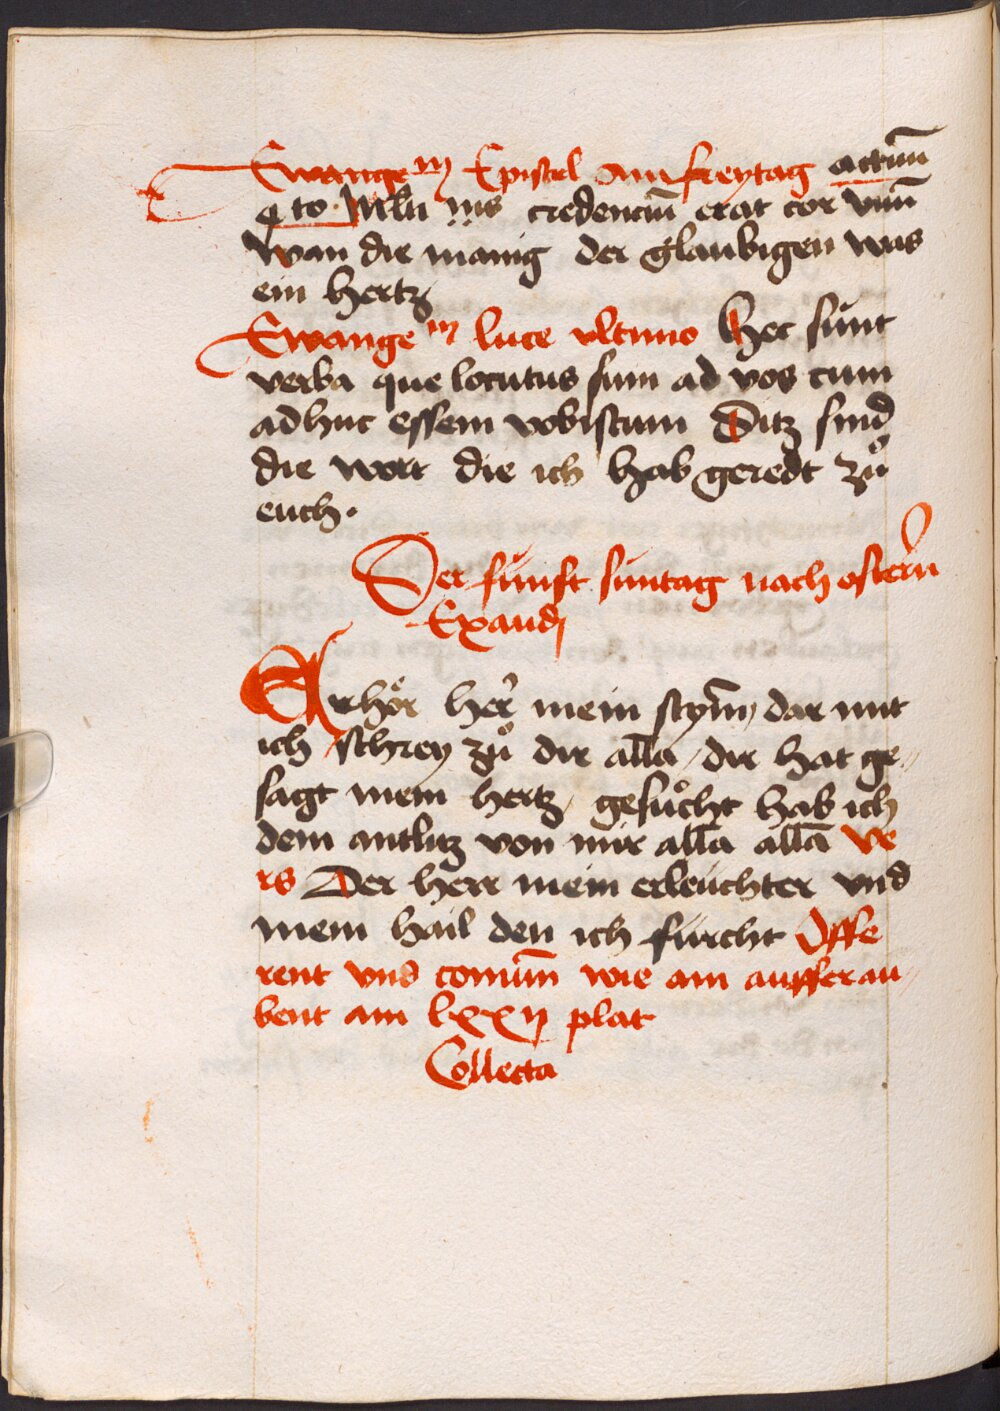 Ewange m Epistel Am freytag actuū
4 to Mltī nis credenciū erat cor vnū
wan die manig der glaubigen was
ein hertz
Ewange m luce vltimo Hec sunt
verba que locutus sum ad vos cum
adhuc essem vobiscum Ditz sind
die wort die ich hab geredt zů
euch.
Der fünft suntag nach ostern
Exaudj
Erhör her mein stym̄ dar mit
ich schrey zů dir all̄a dir hat ge„
sagt mein hertz gesůcht hab ich
dein antlitz von mir all̄a all̄a Ve
rs Der herr mein erleüchter vnd
mein hail den ich fürcht Offe
rent vnd comūm wie am aufferau„
bent am lxxij plat
Collecta